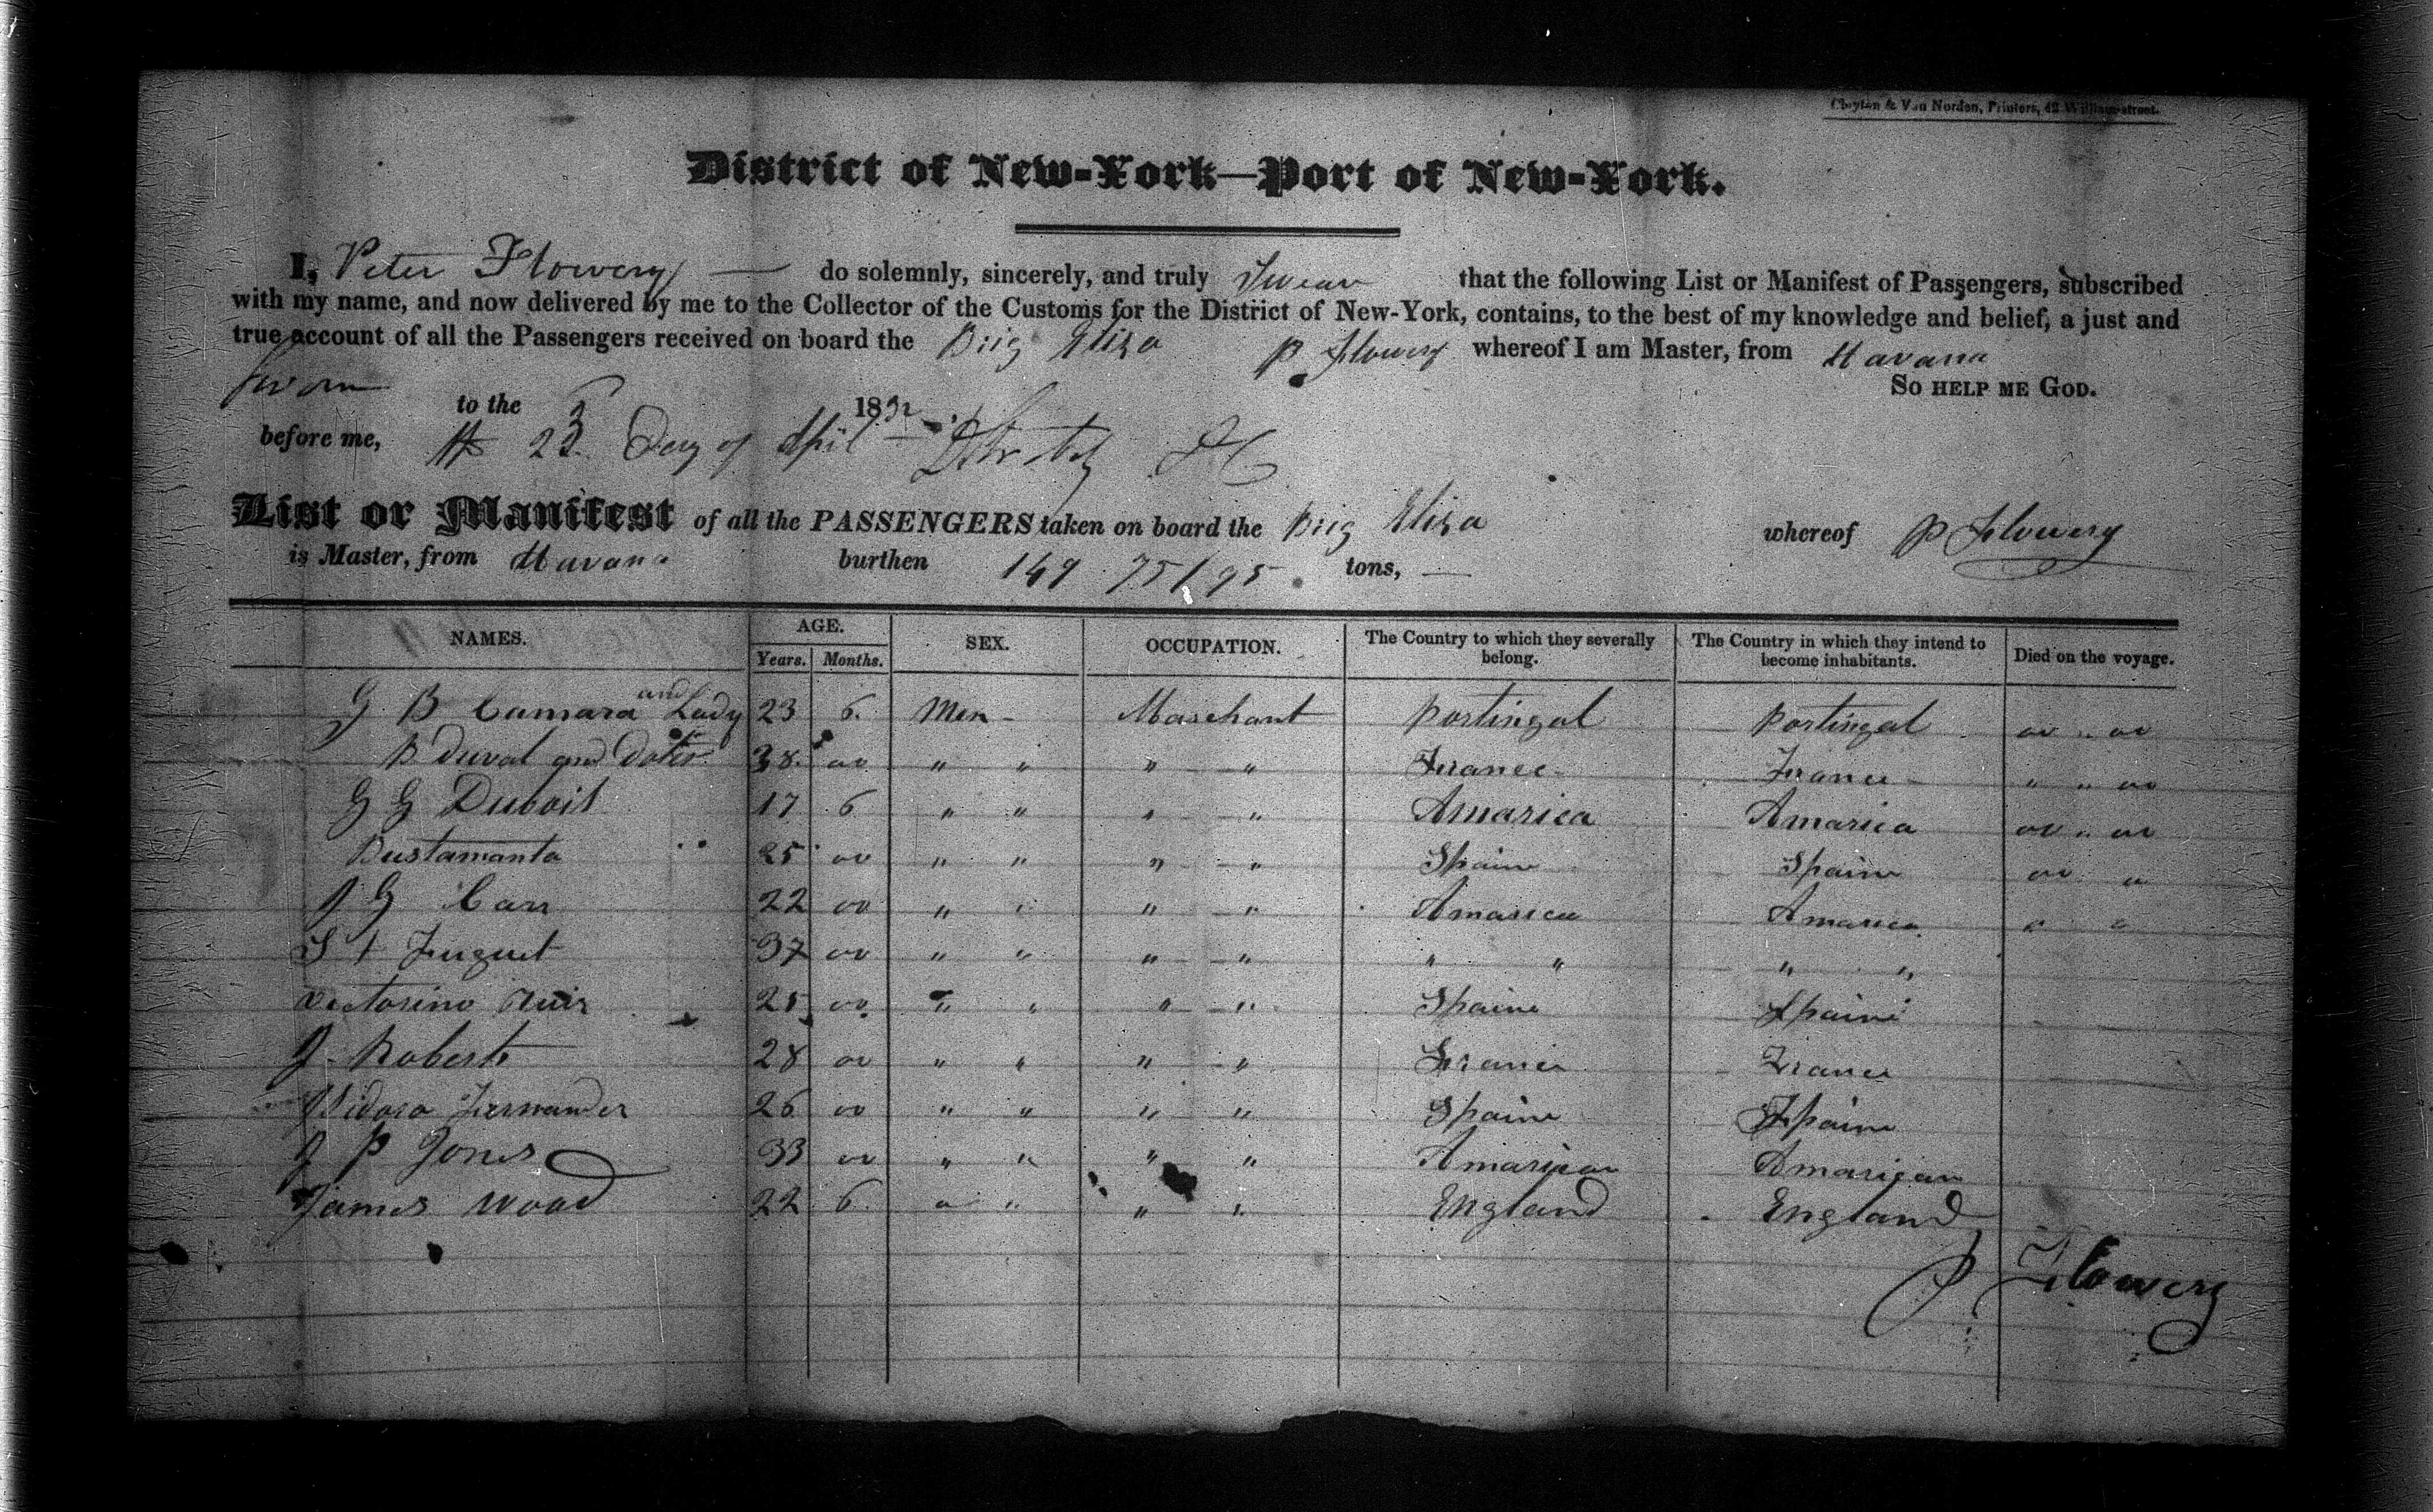 Clayton & Van Norden, Printers, 42 William-street.
District of New-York—Port of New-York.
I, Peter Flowery — do solemnly, sincerely, and truly Swear that the following List or Manifest of Passengers, subscribed
with my name, and now delivered by me to the Collector of the Customs for the District of New-York, contains, to the best of my knowledge and belief, a just and
true account of all the Passengers received on board the Brig Eliza P Flowery whereof I am Master, from Havana
Sworn So help me God.
to the 1832
before me, 23 Day of April
List or Manifest of all the PASSENGERS taken on board the Brig Eliza whereof P Flowery
is Master, from Havana burthen 149 75/95 tons, —
NAMES. AGE. SEX. OCCUPATION. The Country to which they severally belong. The Country in which they intend to become inhabitants. Died on the voyage.
Years. Months.
G B Camara and Lady 23 6 Men - Marchant Portingal Portingal
B Duval and 38 00 " " " " France France
G G Duboit 17 6 " " " " Amarica Amarica
Bustamanta 25 00 " " " " Spain Spain
J G Carr 22 00 " " " " Amarica Amarica
Fuguet 37 00 " " " " " " " "
Victorino Ruiz 25 00 " " " " Spaine Spaine
J. Roberts 28 00 " " " " France France
Isidoro Fernander 26 00 " " " " Spaine Spaine
J P Jones 33 00 " " " " Amarican Amarican
James Wood 22 6 " " " " England England
P Flowery